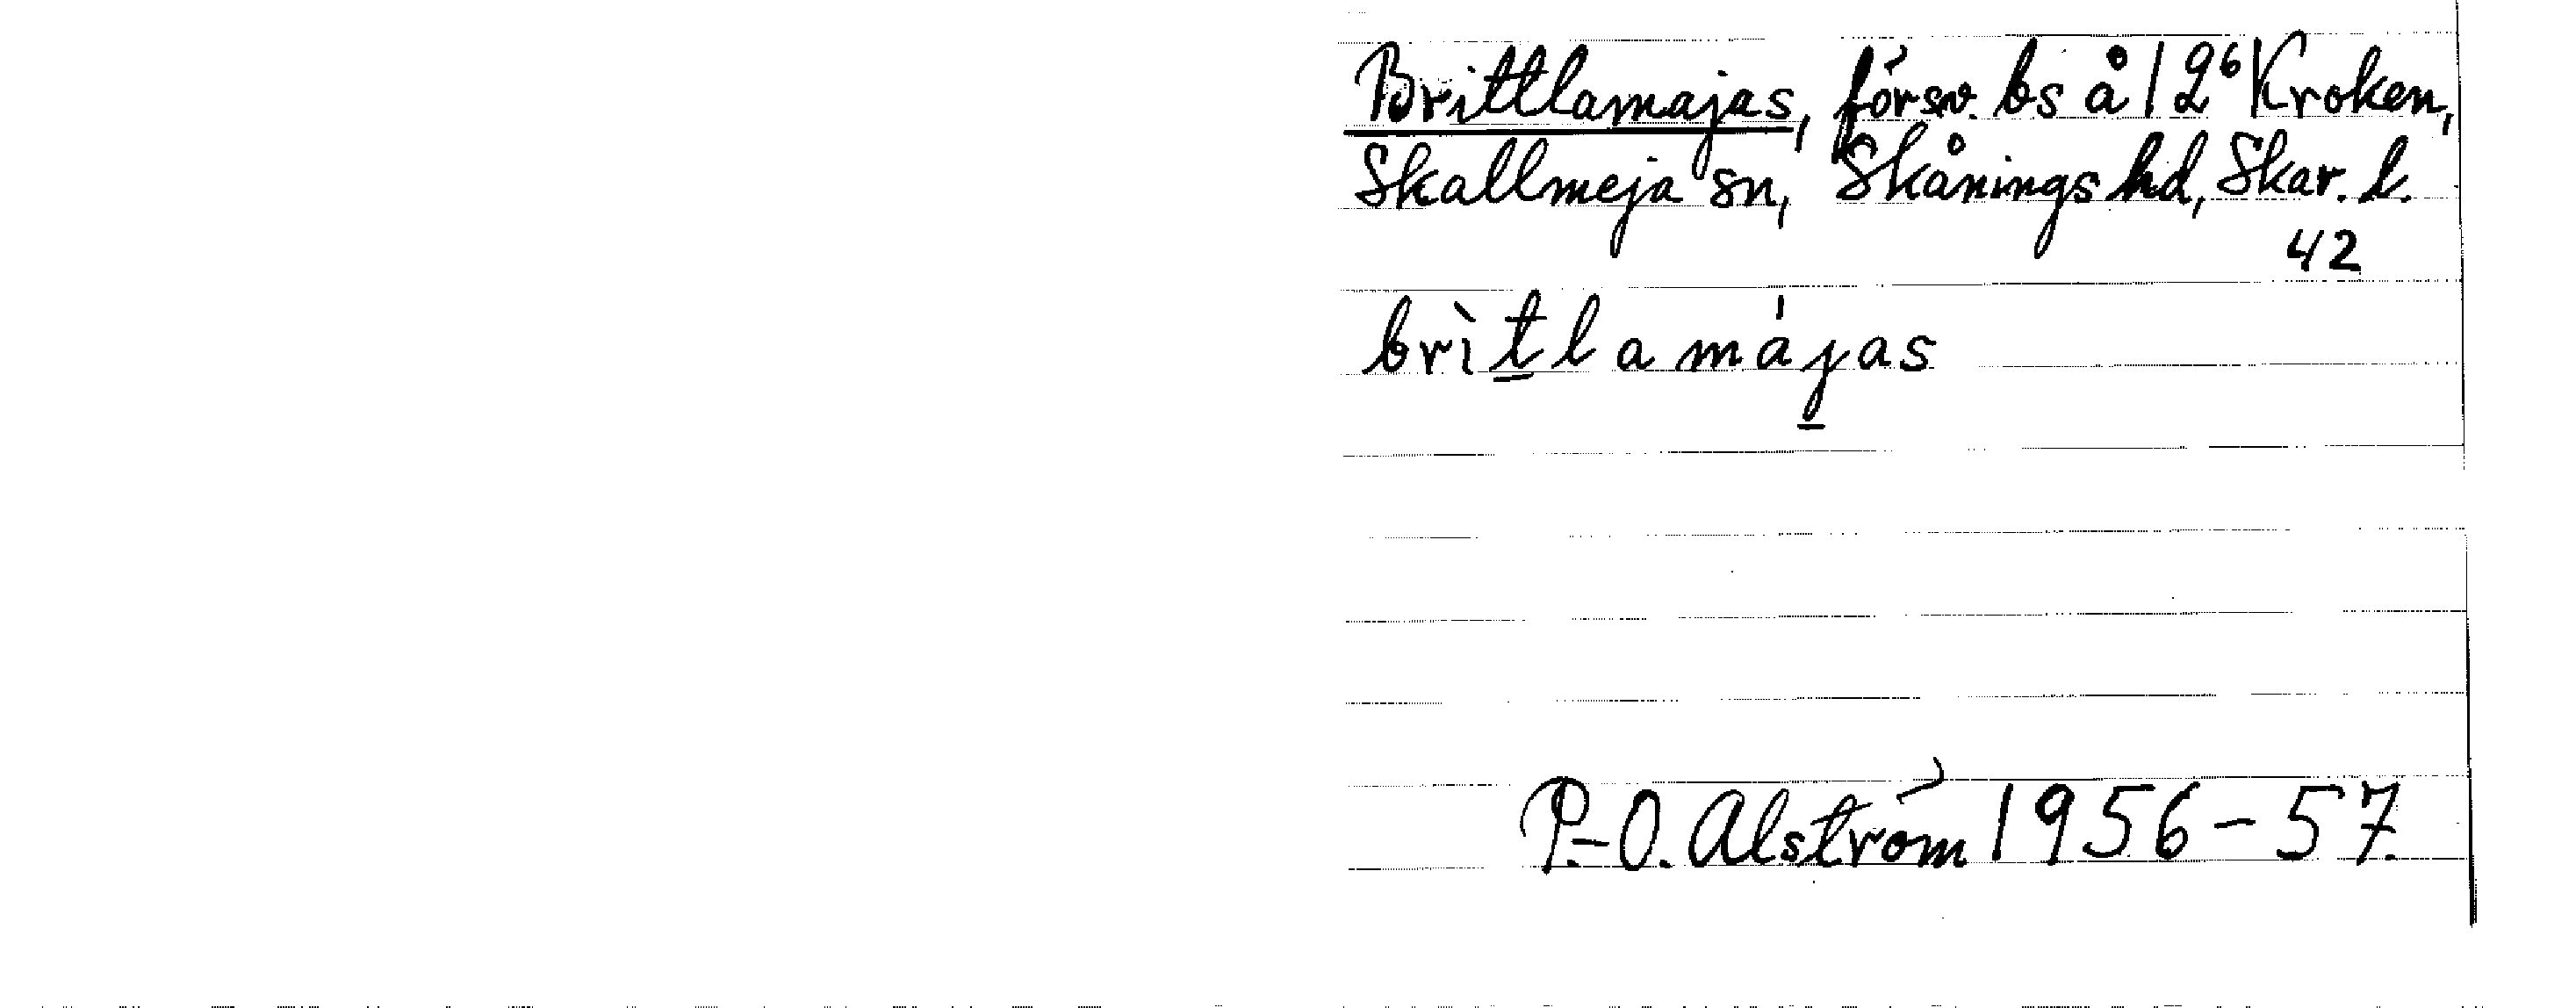 Brittlamajas, försv. bs å 1 2⁶ Kroken,
Skallmeja sn, Skånings hd, Skar. l.
42
brìt̲lamáj̲as
P.-O. Alström 1956-57.